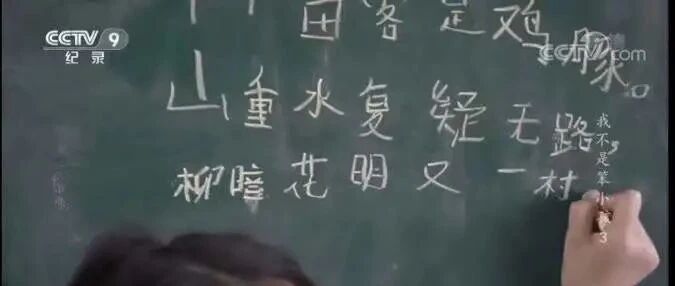 CCTV 9
纪录
CCTV.com
足鸡豚。
山重水复疑无路，
柳暗花明又一村
我不是笨小孩3